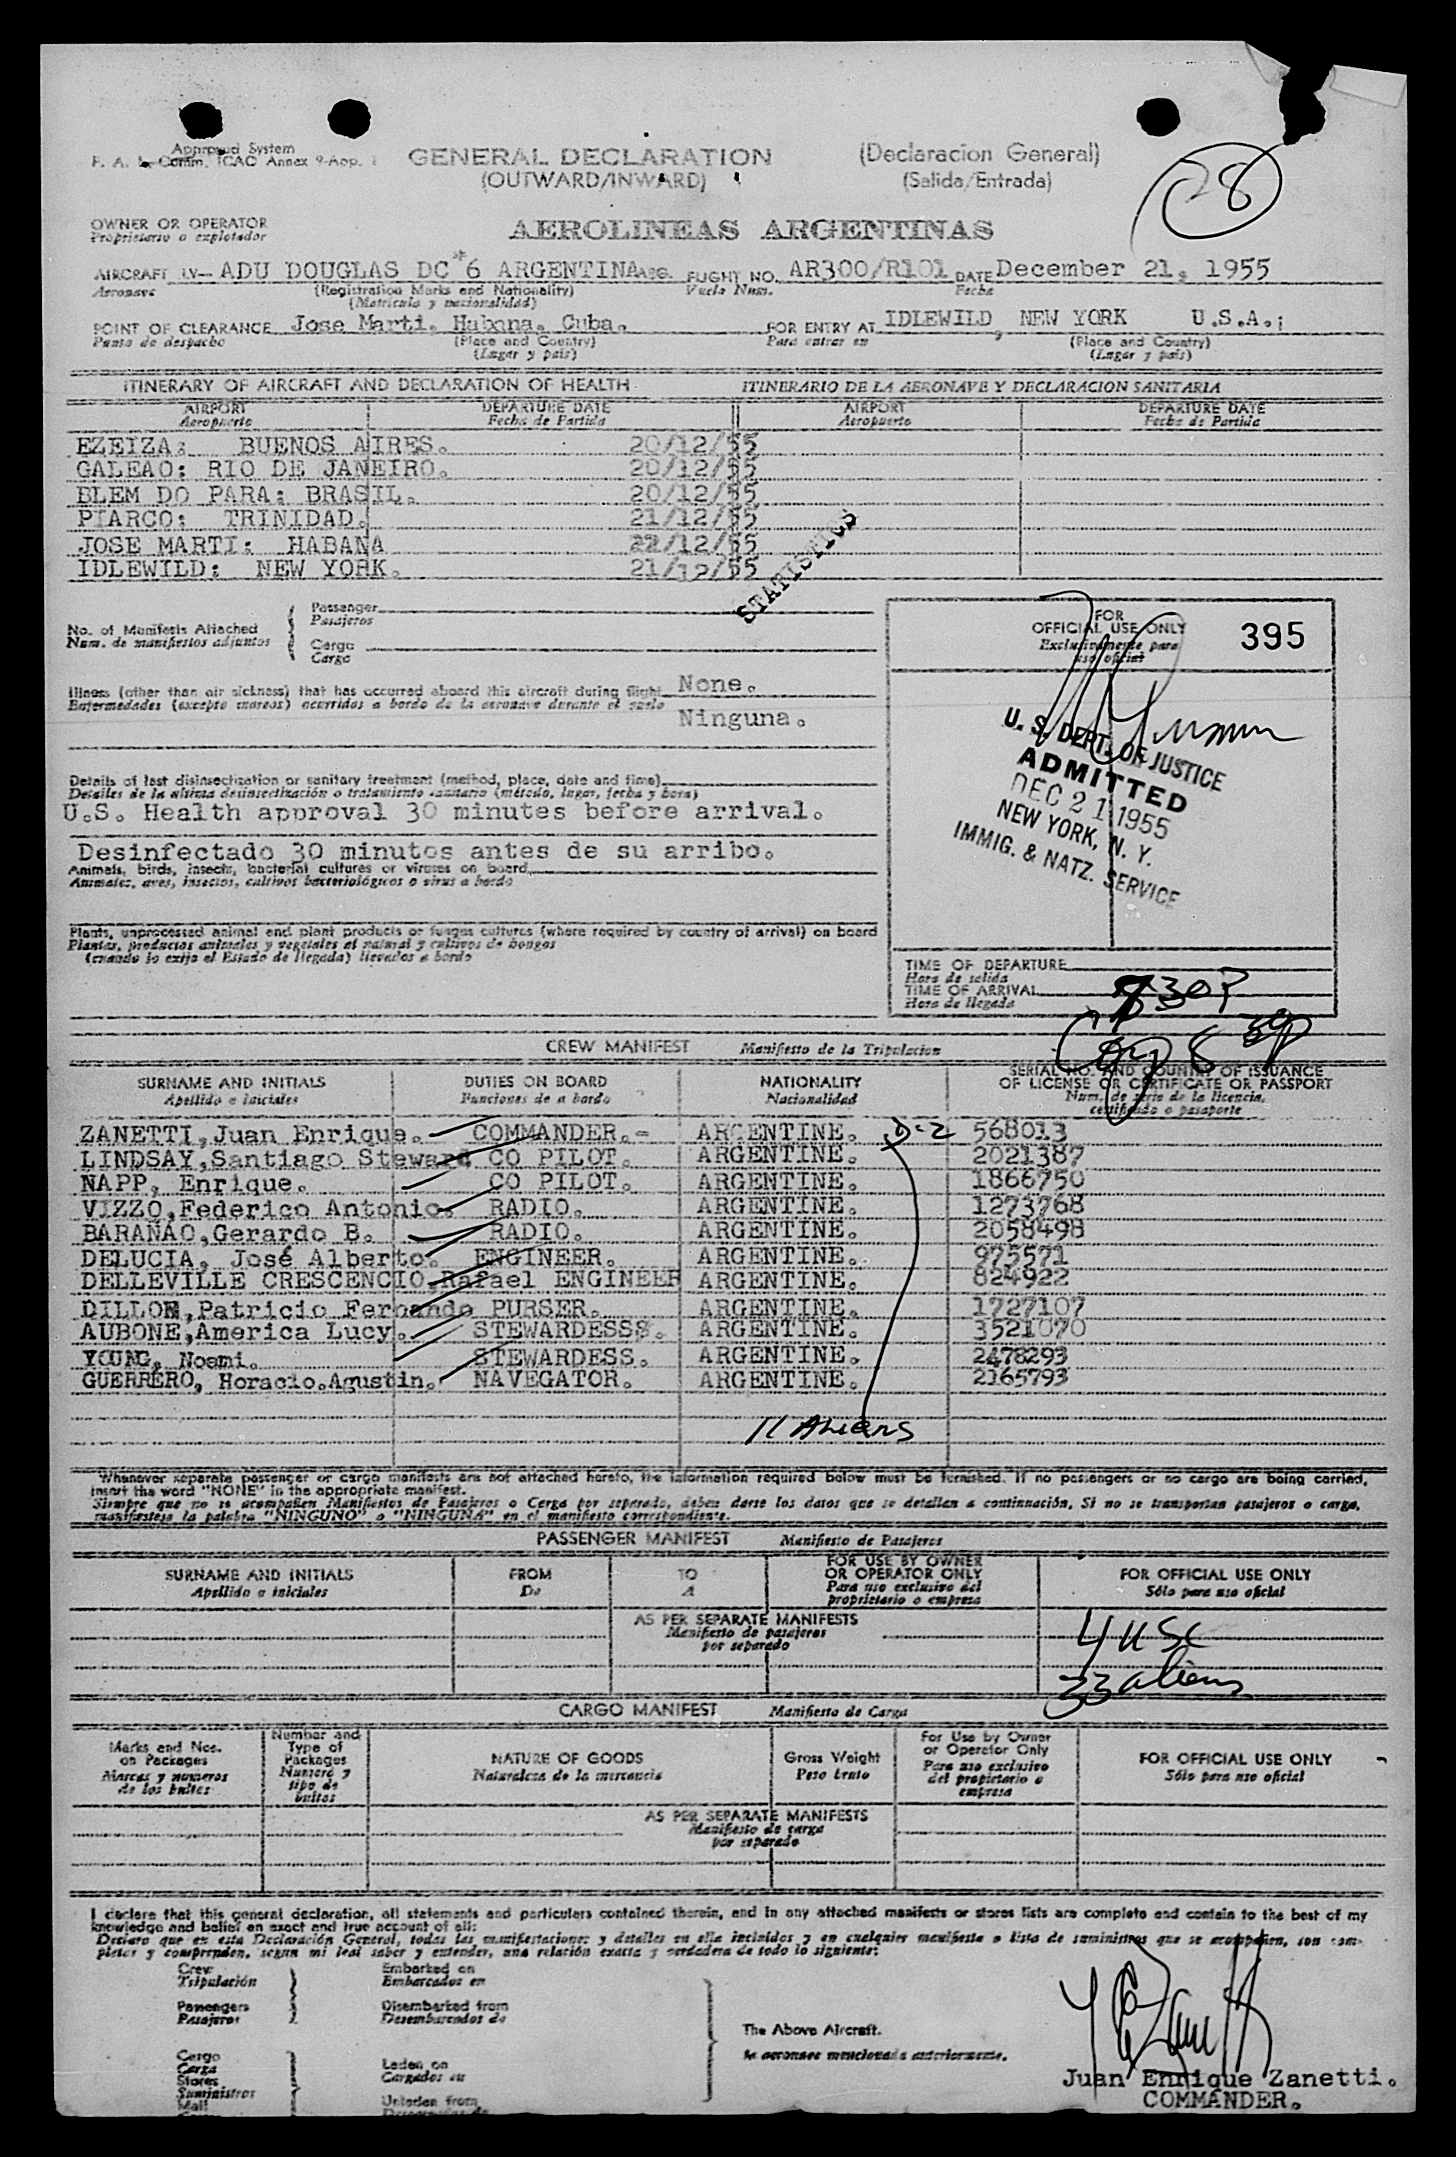 Approved System
F. A. L. Comm. ICAO Annex 9-App. 1
GENERAL DECLARATION
(OUTWARD/INWARD)
(Declaracion General)
(Salida/Entrada)
28
OWNER OR OPERATOR
Proprietario o explotador
AEROLINEAS ARGENTINAS
AIRCRAFT LV- ADU DOUGLAS DC*6 ARGENTINA FLIGHT NO. AR300/R101 DATE December 21, 1955
Aeronave (Registration Marks and Nationality) Vuelo Num. Fecha
(Matricula y nacionalidad)
POINT OF CLEARANCE Jose Marti. Habana. Cuba. FOR ENTRY AT IDLEWILD, NEW YORK U.S.A.;
Punto de despacho (Place and Country) Para entrar en (Place and Country)
(Lugar y país) (Lugar y país)
ITINERARY OF AIRCRAFT AND DECLARATION OF HEALTH ITINERARIO DE LA AERONAVE Y DECLARACION SANITARIA
AIRPORT DEPARTURE DATE AIRPORT DEPARTURE DATE
Aeropuerto Fecha de Partida Aeropuerto Fecha de Partida
EZEIZA: BUENOS AIRES. 20/12/55
GALEAO: RIO DE JANEIRO. 20/12/55
BLEM DO PARA: BRASIL. 20/12/55
PIARCO: TRINIDAD. 21/12/55
JOSE MARTI: HABANA 22/12/55
IDLEWILD: NEW YORK. 21/12/55
STATISTICS
No. of Manifests Attached
Num. de manifiestos adjuntos
Passenger
Pasajeros
Cargo
Carga
FOR
OFFICIAL USE ONLY
Exclusivamente para
uso oficial
395
Illness (other than air sickness) that has occurred aboard this aircraft during flight None.
Enfermedades (excepto mareos) ocurridas a bordo de la aeronave durante el vuelo
Ninguna.
U. S. DEPT. OF JUSTICE
ADMITTED
DEC 21 1955
NEW YORK, N. Y.
IMMIG. & NATZ. SERVICE
Details of last disinsectization or sanitary treatment (method, place, date and time)
Detalles de la ultima desinsectización o tratamiento sanitario (método, lugar, fecha y hora)
U.S. Health approval 30 minutes before arrival.
Desinfectado 30 minutos antes de su arribo.
Animals, birds, insects, bacterial cultures or viruses on board
Animales, aves, insectos, cultivos bacteriológicos o virus a bordo
Plants, unprocessed animal and plant products or fungus cultures (where required by country of arrival) on board
Plantas, productos animales y vegetales al natural y cultivos de hongos
(cuando lo exija el Estado de llegada) llevados a bordo
TIME OF DEPARTURE
Hora de salida
TIME OF ARRIVAL 730P
Hora de llegada
CREW MANIFEST Manifiesto de la Tripulacion
SURNAME AND INITIALS DUTIES ON BOARD NATIONALITY SERIAL NO. AND COUNTRY OF ISSUANCE
OF LICENSE OR CERTIFICATE OR PASSPORT
Apellido e iniciales Funciones de a bordo Nacionalidad Num. de serie de la licencia,
certificado o pasaporte
ZANETTI,Juan Enrique. COMMANDER.- ARGENTINE. D-2 568013
LINDSAY,Santiago Steward CO PILOT. ARGENTINE. 2021387
NAPP, Enrique. CO PILOT. ARGENTINE. 1866750
VIZZO,Federico Antonio. RADIO. ARGENTINE. 1273768
BARAÑAO,Gerardo B. RADIO. ARGENTINE. 2058498
DELUCIA, José Alberto. ENGINEER. ARGENTINE. 975571
DELLEVILLE CRESCENCIO,Rafael ENGINEER ARGENTINE. 824922
DILLON,Patricio Fernando PURSER. ARGENTINE. 1727107
AUBONE,America Lucy. STEWARDESSS. ARGENTINE. 3521070
YOUNG, Noemi. STEWARDESS. ARGENTINE. 2478293
GUERRERO, Horacio.Agustin. NAVEGATOR. ARGENTINE. 2165793
11 Aliens
Whenever separate passenger or cargo manifests are not attached hereto, the information required below must be furnished. If no passengers or no cargo are being carried,
insert the word "NONE" in the appropriate manifest.
Siempre que no se acompañen Manifiestos de Pasajeros o Carga por separado, deben darse los datos que se detallan a continuación. Si no se transportan pasajeros o carga,
manifiestese la palabra "NINGUNO" o "NINGUNA" en el manifiesto correspondiente.
PASSENGER MANIFEST Manifiesto de Pasajeros
SURNAME AND INITIALS FROM TO FOR USE BY OWNER
OR OPERATOR ONLY FOR OFFICIAL USE ONLY
Apellido e iniciales De A Para uso exclusivo del
proprietario o empresa Sólo para uso oficial
AS PER SEPARATE MANIFESTS
Manifiesto de pasajeros
por separado
4 USC
33 aliens
CARGO MANIFEST Manifiesto de Carga
Marks and Nos.
on Packages
Marcas y numeros
de los bultos
Number and
Type of
Packages
Numero y
tipo de
bultos
NATURE OF GOODS
Naturaleza de la mercancia
Gross Weight
Peso bruto
For Use by Owner
or Operator Only
Para uso exclusivo
del propietario o
empresa
FOR OFFICIAL USE ONLY
Sólo para uso oficial
AS PER SEPARATE MANIFESTS
Manifiesto de carga
por separado
I declare that this general declaration, all statements and particulars contained therein, and in any attached manifests or stores lists are complete and contain to the best of my
knowledge and belief an exact and true account of all:
Declaro que en esta Declaración General, todas las manifestaciones y detalles en ella incluídos y en cualquier manifiesto o lista de suministros que se acompañen, son com-
pletos y comprenden, segun mi leal saber y entender, una relación exacta y verdadera de todo lo siguiente:
Crew
Tripulación
Embarked on
Embarcados en
Passengers
Pasajeros
Disembarked from
Desembarcados de
The Above Aircraft.
la aeronave mencionada anteriormente.
Cargo
Carga
Stores
Suministros
Mail
Laden on
Cargados en
Unladen from
Juan Enrique Zanetti.
COMMANDER.